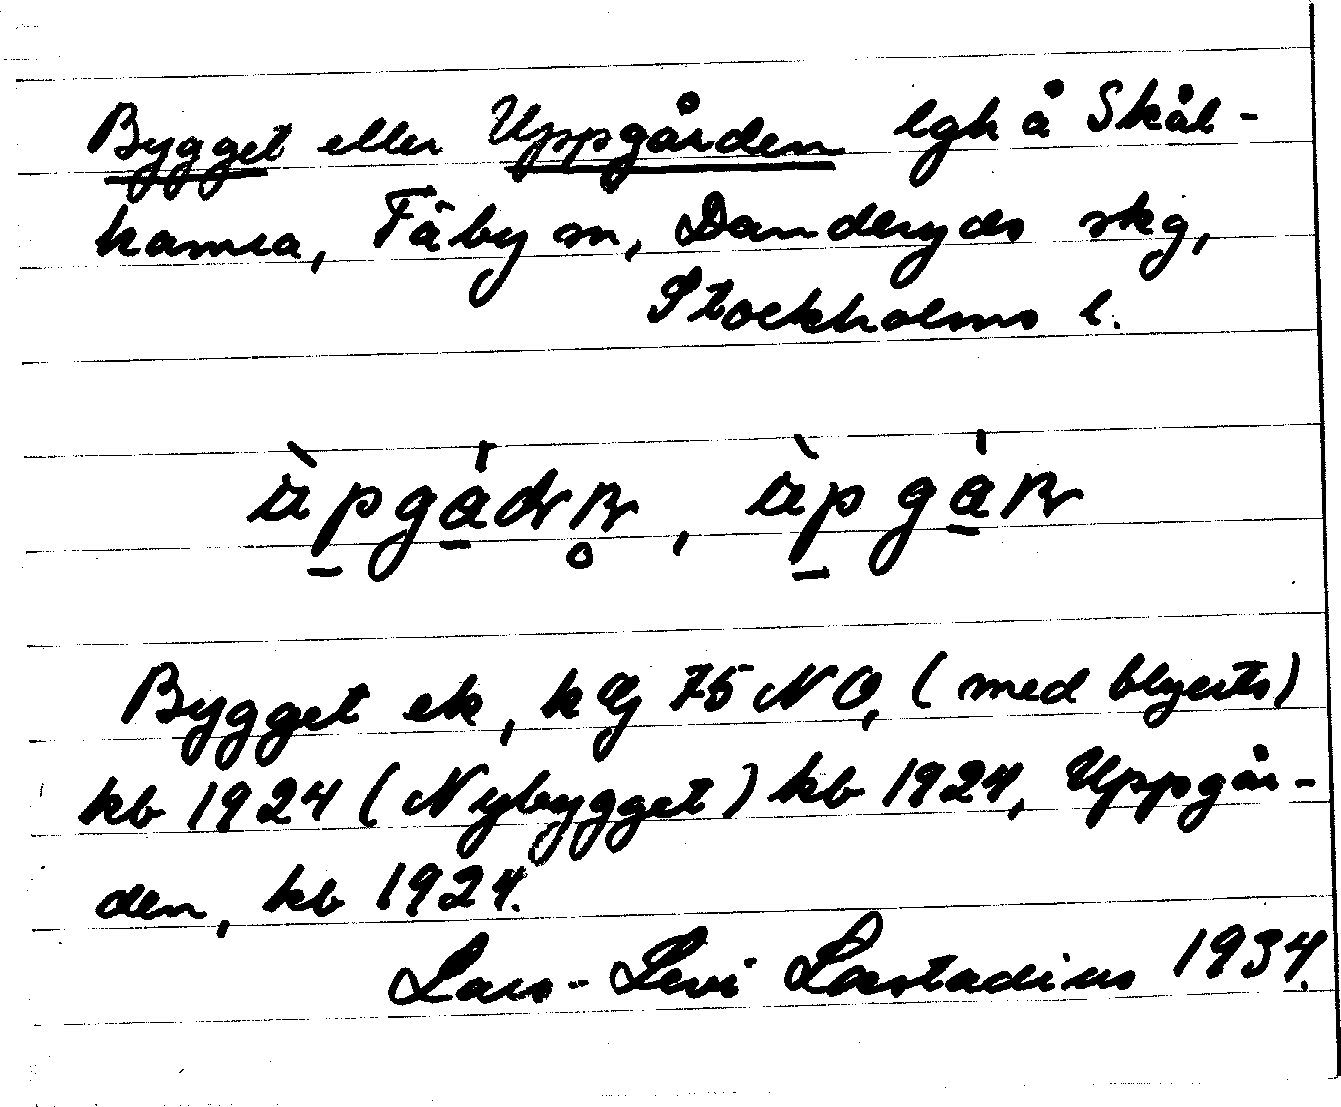 Bygget eller Uppgården lgh å Skål-
hamra, Täby sn, Danderyds skg,
Stockholms l.
ùpgádn̥, ùpgán
Bygget ek, k Æ 75 NO, (med blyerts)
kb 1924 (Nybygget) kb 1924, Uppgår-
den, kb 1924.
Lars-Levi Læstadius 1934.